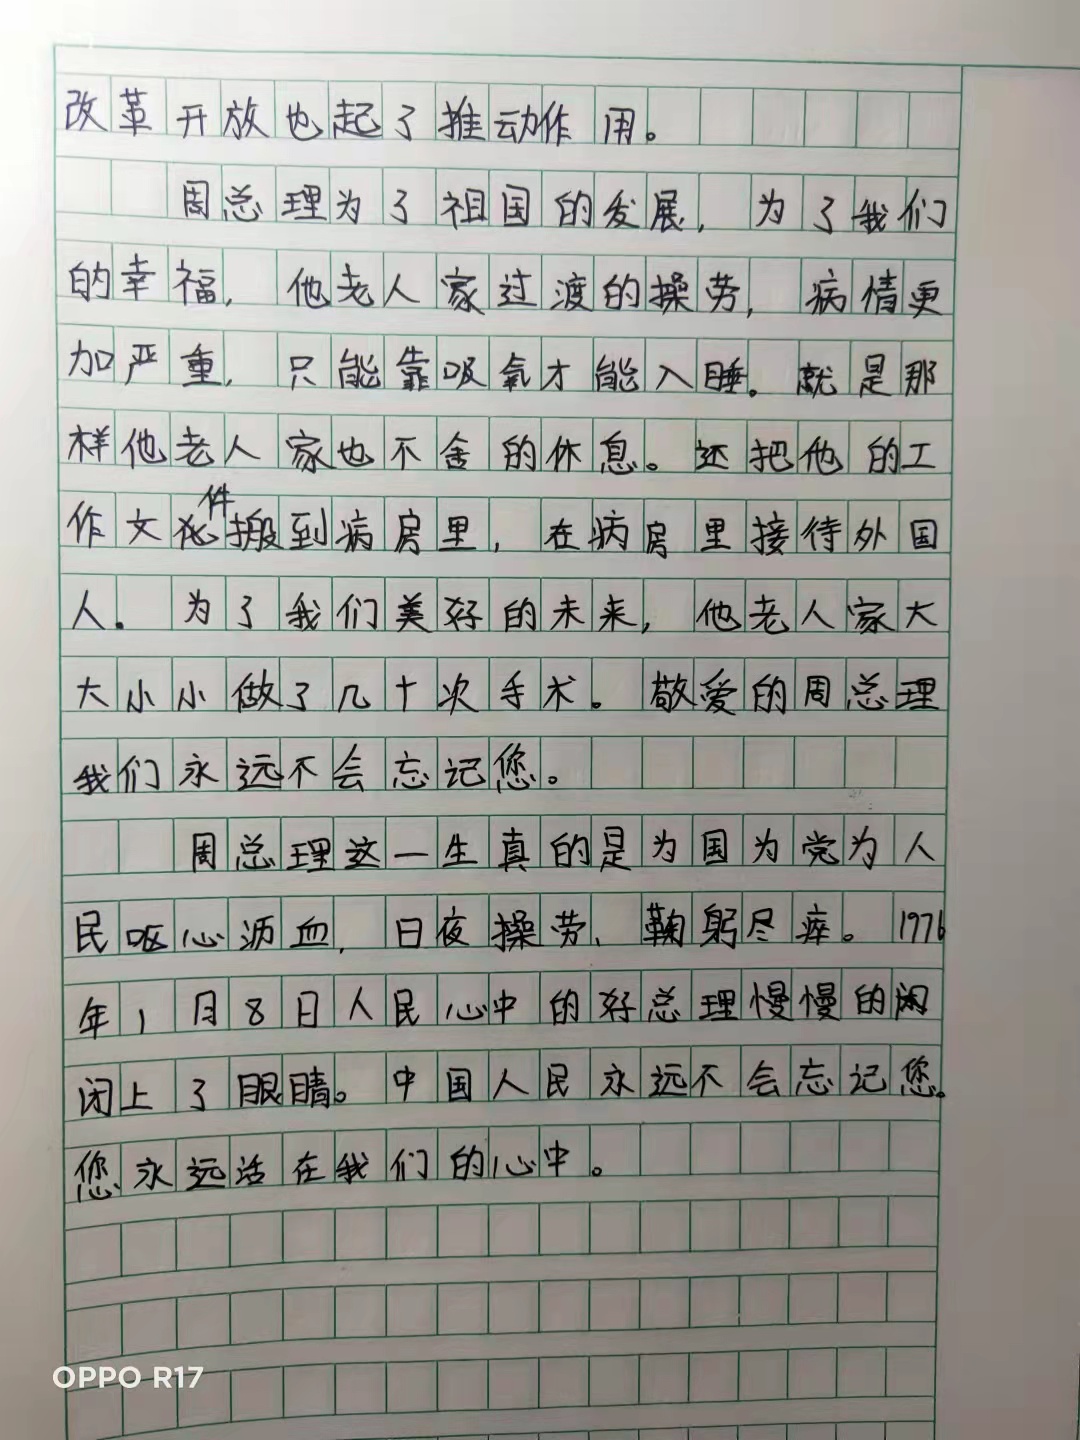 改革开放也起了推动作用。
周总理为了祖国的发展，为了我们
的幸福，他老人家过渡的操劳，病情更
加严重，只能靠吸氧才能入睡。就是那
样他老人家也不舍的休息。还把他的工
作文件搬到病房里，在病房里接待外国
人。为了我们美好的未来，他老人家大
大小小做了几十次手术。敬爱的周总理
我们永远不会忘记您。
周总理这一生真的是为国为党为人
民呕心沥血，日夜操劳、鞠躬尽瘁。1976
年1月8日人民心中的好总理慢慢的
闭上了眼睛。中国人民永远不会忘记您。
您永远活在我们的心中。
OPPO R17